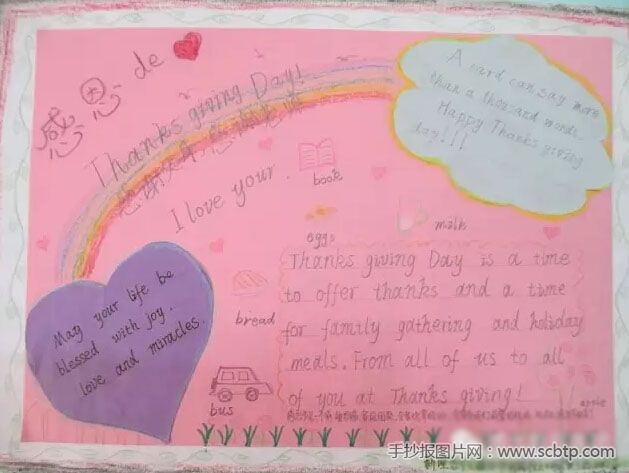 感恩de
Thanks giving Day!
I love your.
A card can say more
than a thousand words.
Happy Thanks giving
day!!!
book
eggs
milk
bread
bus
May your life be
blessed with joy.
love and miracles.
Thanks giving Day is a time
to offer thanks and a time
for family gathering and holiday
meals. From all of us to all
of you at Thanks giving!
apple
手抄报图片网：www.scbtp.com